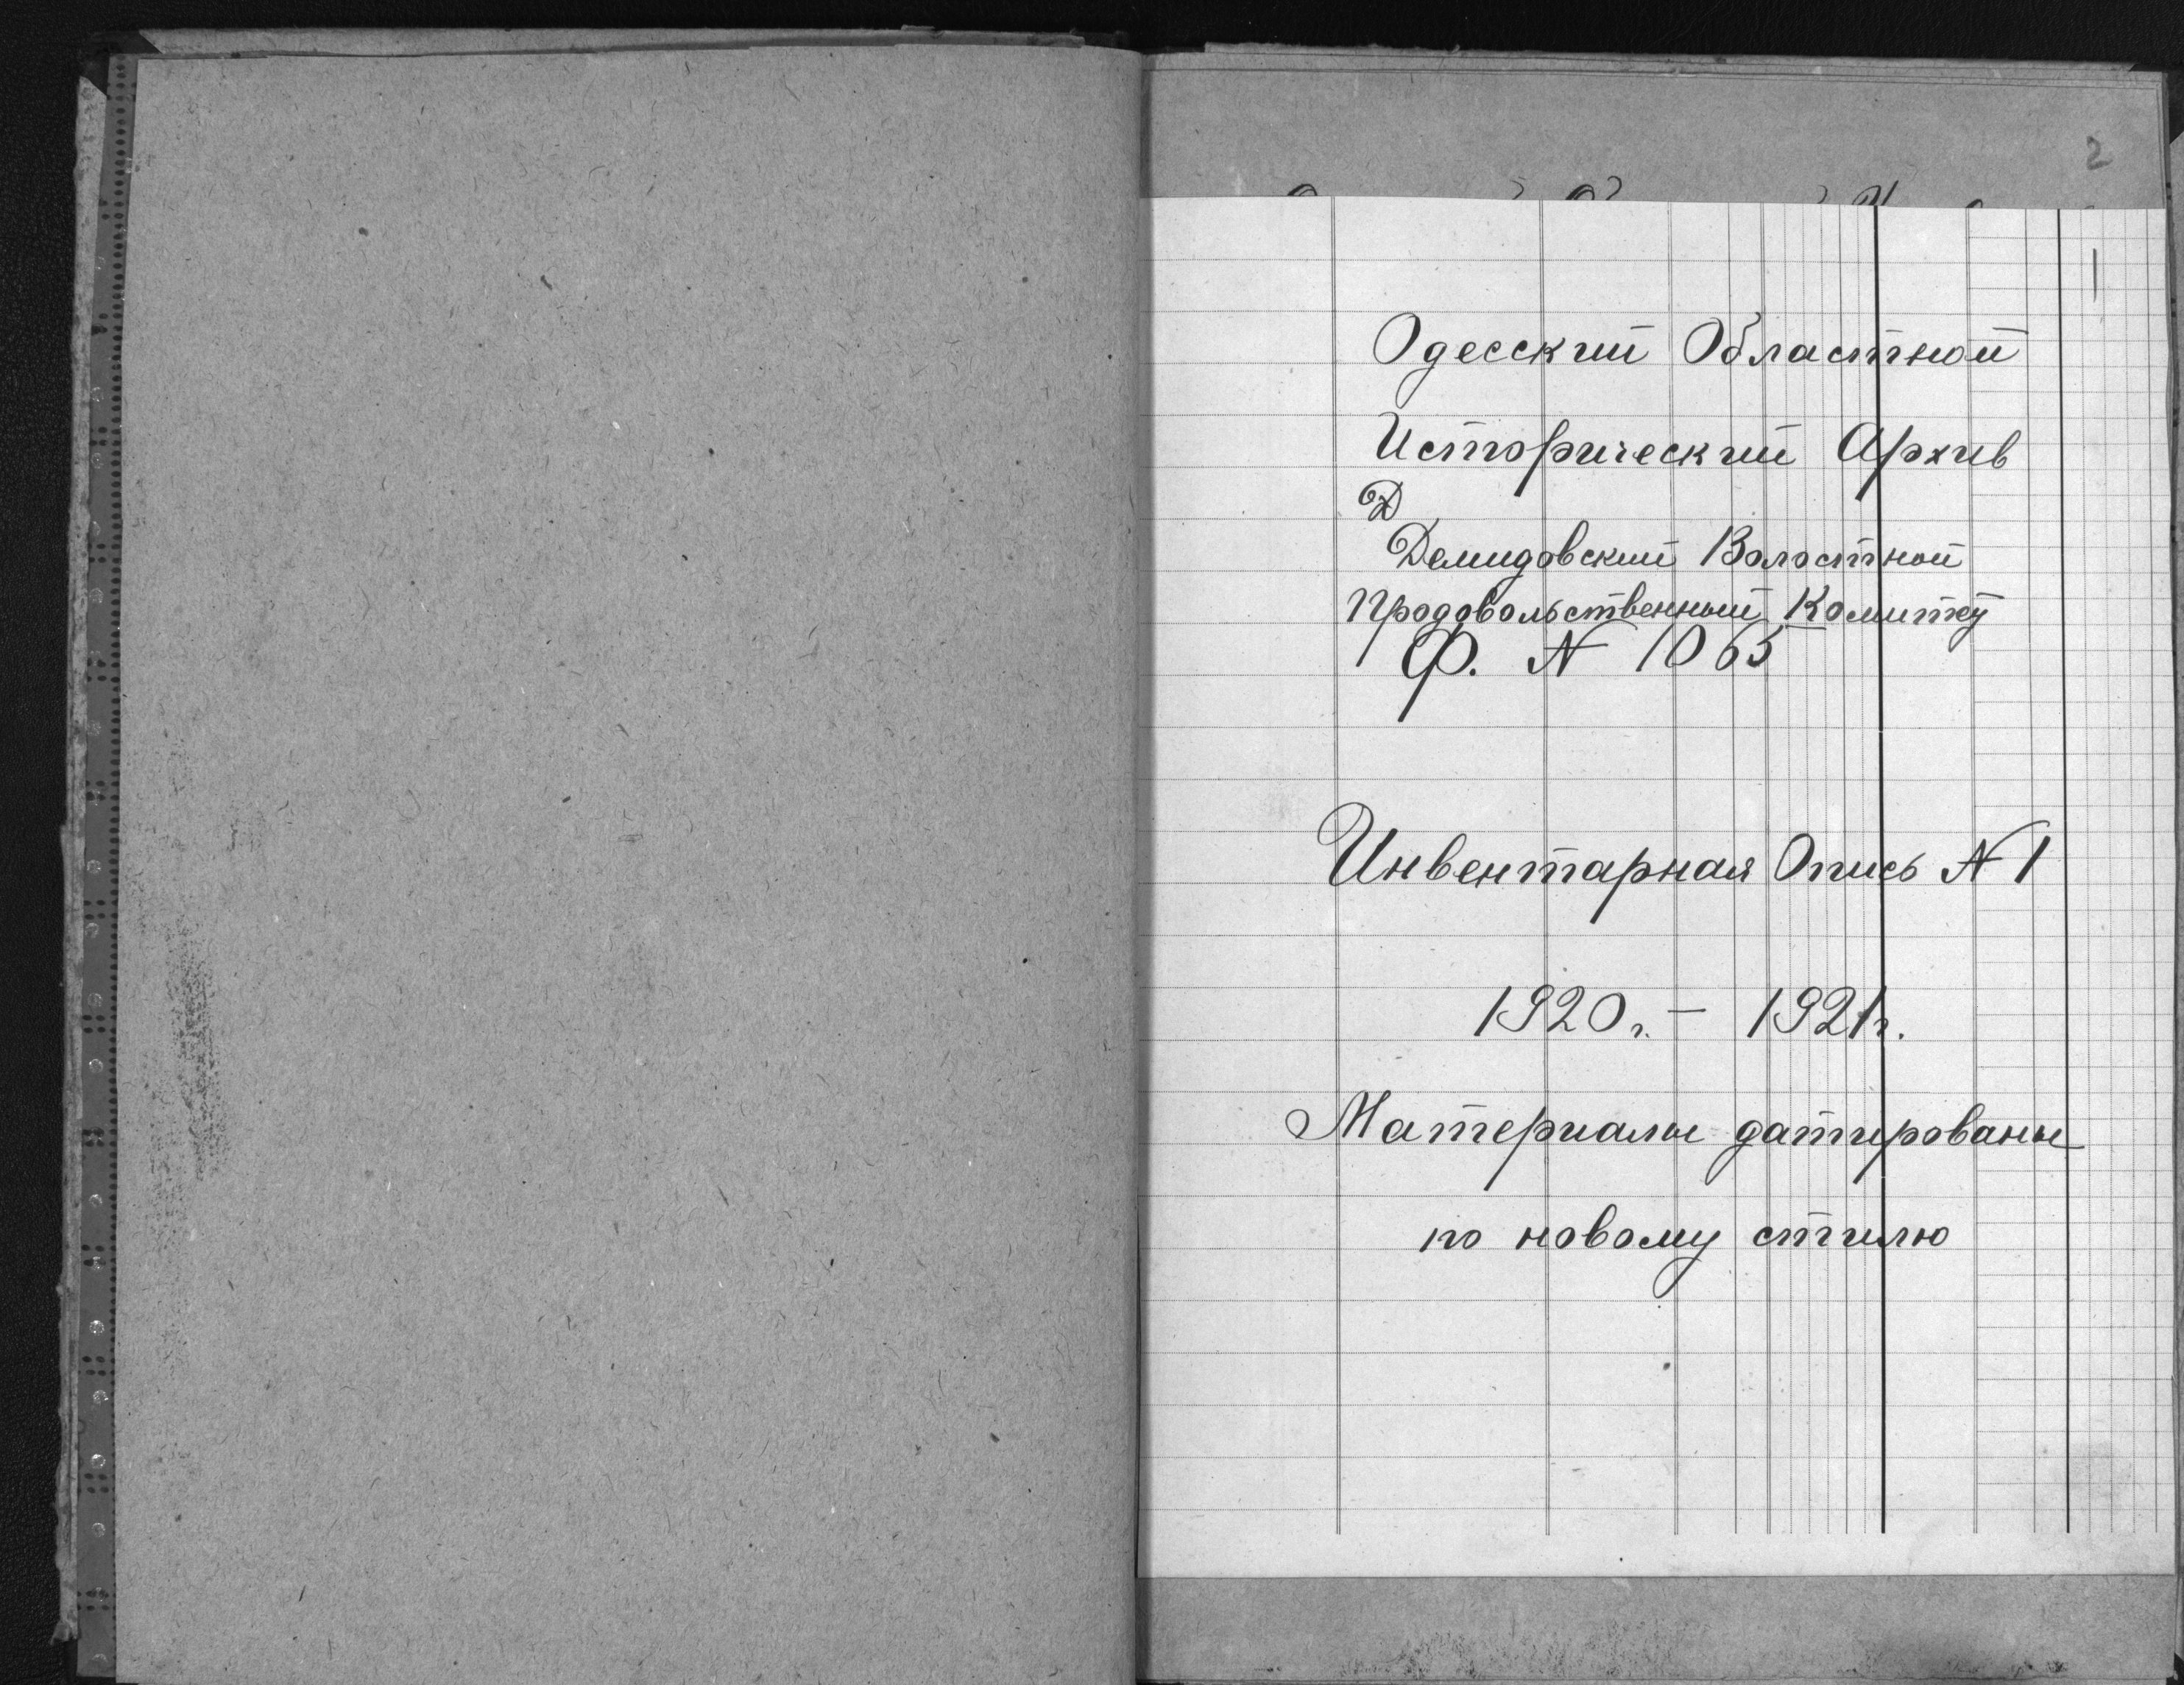 2
1
Одесский Областной
Исторический Архив
Д
Демидовский Волостной
Продовольственный Комитет
Ф. N 1065
Инвентарная Опись N 1
1920г. — 1921г.
Материалы датированы
по новому стилю